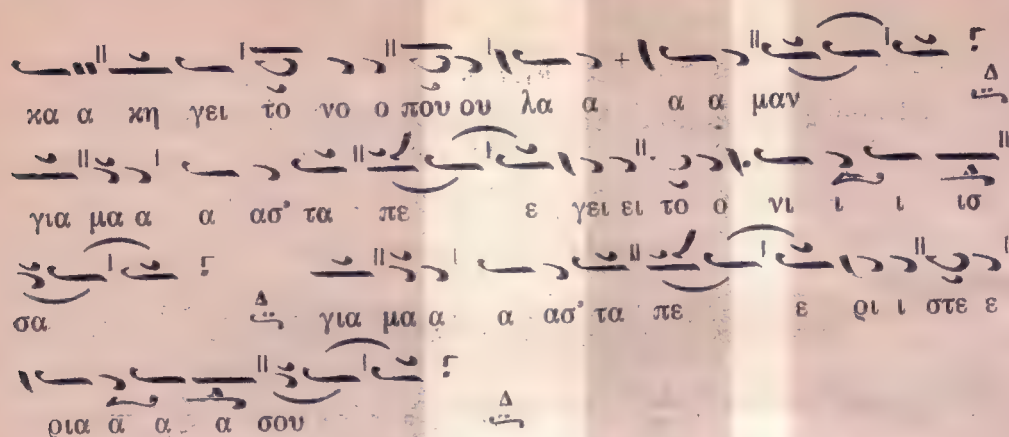 κα α κη γει το νο ο που ου λα α α α μαν Δ
για μα α α ασ' τα πε ε γει ει το ο νι ι ι ισ
σα Δ για μα α α ασ' τα πε ε ρι ι στε ε
ρια α α α σου Δ